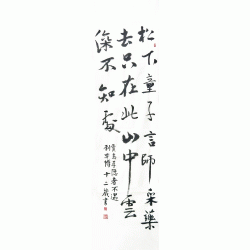 松下童子言師采藥
去只在此山中雲
深不知處
賈島尋隱者不遇
十二歲書